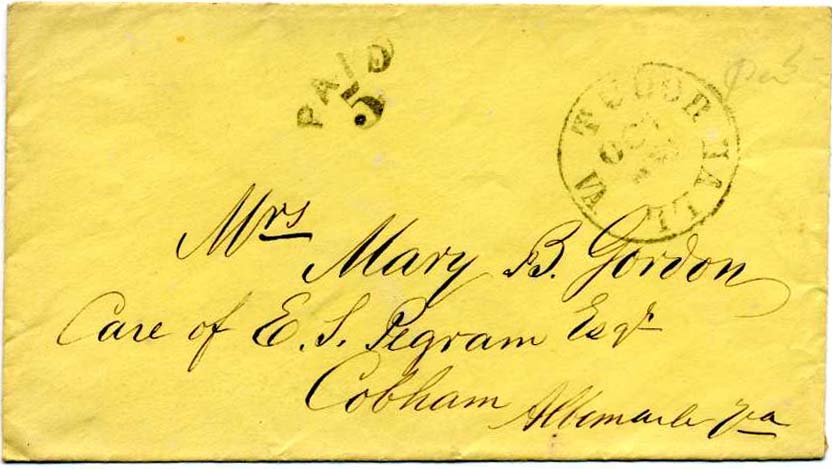 PAID
5
TUDOR HALL Va
OCT
Mrs
Mary B. Gordon
Care of E. S. Pegram Esqr
Cobham Albemarle Va